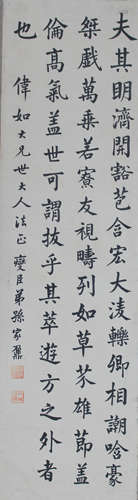 夫其明濟開豁苞含宏大淩轢卿相謿哈豪
桀戲萬乘若寮友視疇列如草芥雄節蓋
倫高氣盖世可謂拔乎其萃遊方之外者
也 偉如大兄世大人法正 燮臣弟孫家鼐